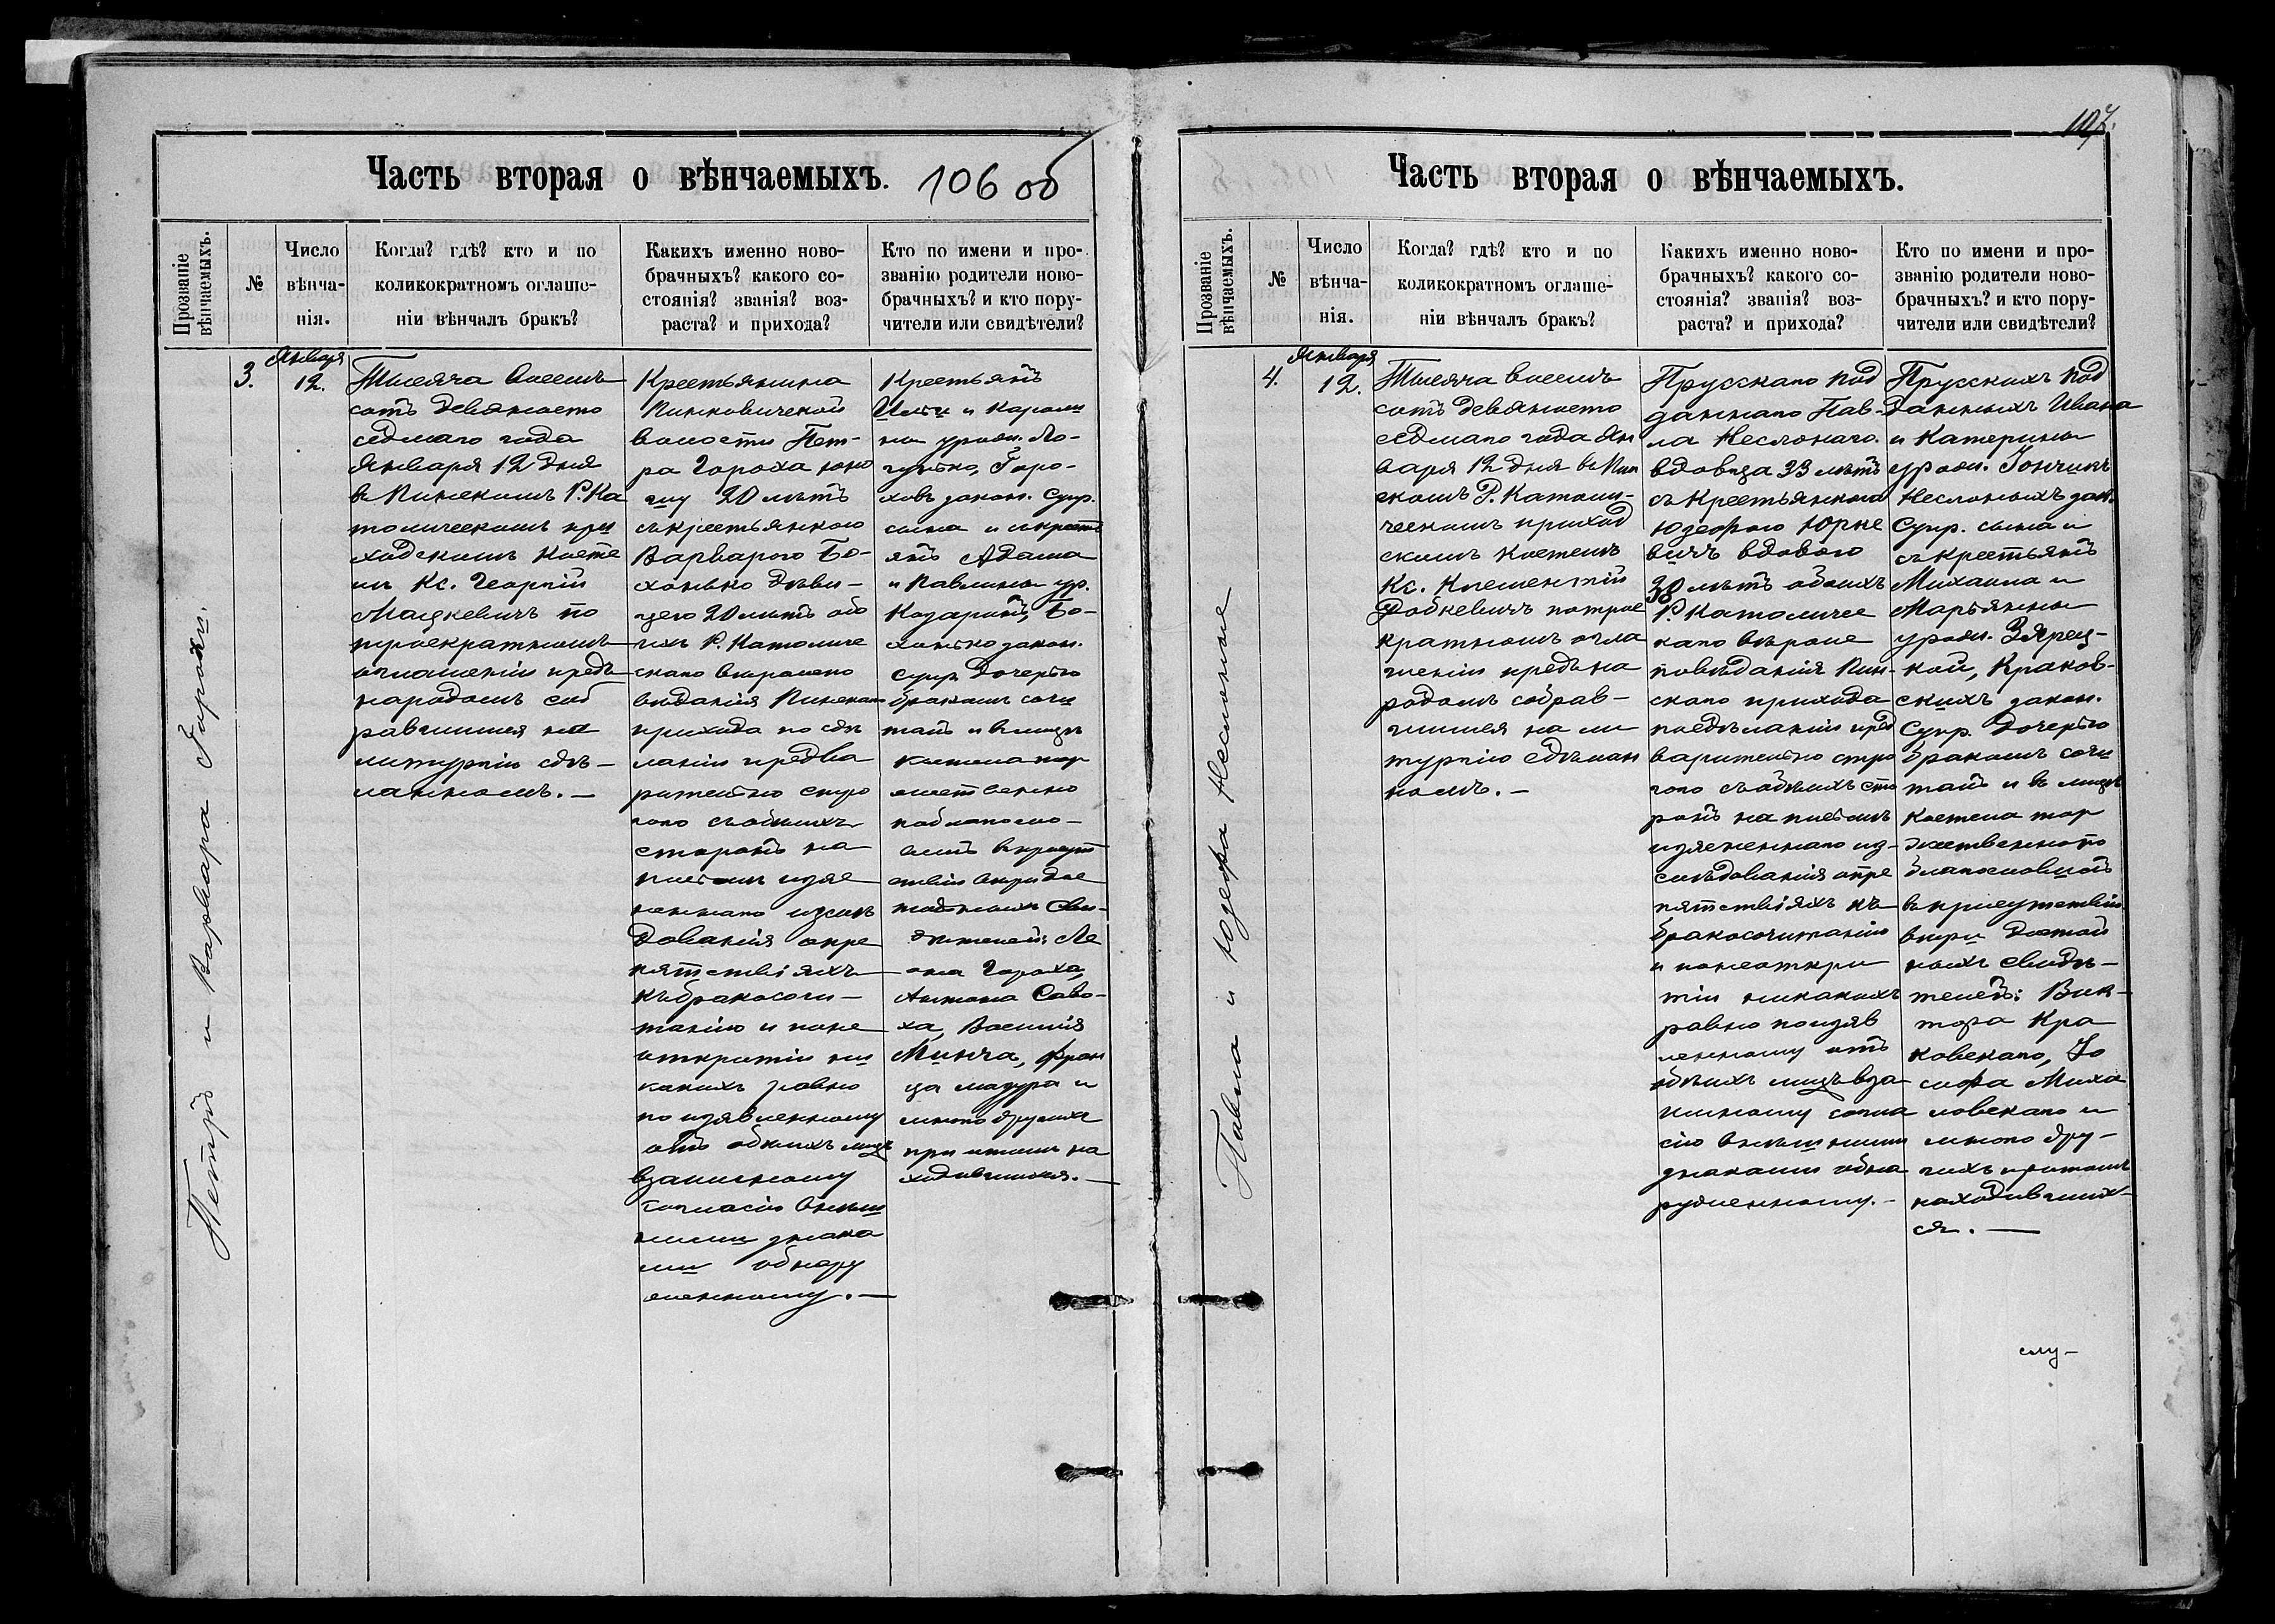 Часть вторая о вѣнчаемыхъ.
106 об
Прозваніе
вѣнчаемыхъ.
№
Число
вѣнча-
нія.
Когда? гдѣ? кто и по
коликократномъ оглаше-
ніи вѣнчалъ бракъ?
Какихъ именно ново-
брачныхъ? какого со-
стоянія? званія? воз-
раста? и прихода?
Кто по имени и про-
званію родители ново-
брачныхъ? и кто пору-
чители или свидѣтели?
Петръ и Варвара Горохи.
3.
Января
12.
Тысяча восемь
сотъ девяносто
седмаго года
Января 12 дня
в Пинскомъ Р. Ка
толическомъ при
ходскомъ косте
лѣ Кс. Георгій
Мацкевичъ по
троекратномъ
оглашеніи предъ
народомъ соб
равшимся на
литургію сдѣ-
ланномъ. —
Крестьянина
Пинковичской
волости Пет-
ра Гороха юно
шу 20 лѣтъ
съ крестьянкою
Варварою Бо-
хонько дѣви-
цею 20 лѣтъ обо
ихъ Р. Католиче
скаго вѣроиспо
вѣданія Пинскаго
прихода по сдѣ
ланіи предва
рительно стро
гого съ обѣихъ
сторонъ на
письмѣ изяс
неннаго изслѣ
дованія о пре
пятствіяхъ
къ бракосоче-
танію и по не
открытіи ни
какихъ равно
по изявленному
отъ обѣихъ лицъ
взаимному
согласію внѣш
ними знака
ми обнару
женному. —
Крестьянъ
и Кароли
ны урожд. Ло-
Горо-
ховъ закон. супр.
сына и съ крестъ
янъ Адама
и Павлины ур.
Бо-
хонько закон.
супр. дочерью
бракомъ соче
талъ и в лицѣ
костела тор
жественно
поблагосло-
вилъ в присут
ствіи вѣри дос
тойныхъ сви-
дѣтелей: Ле
она Гороха,
Антона Саво-
ха, Василія
Минча, Фран
ца Мазура и
много другихъ
при этомъ на
ходившихся. —
107.
Часть вторая о вѣнчаемыхъ.
Прозваніе
вѣнчаемыхъ.
№
Число
вѣнча-
нія.
Когда? гдѣ? кто и по
коликократномъ оглаше-
ніи вѣнчалъ бракъ?
Какихъ именно ново-
брачныхъ? какого со-
стоянія? званія? воз-
раста? и прихода?
Кто по имени и про-
званію родители ново-
брачныхъ? и кто пору-
чители или свидѣтели?
Павла и Юзефа Неслоные
4.
Января
12.
Тысяча восемь
сотъ девяносто
седмаго года Ян
варя 12 дня в Пин
скомъ Р. Католи-
ческомъ приход
скомъ костелѣ
Кс. Клементій
Добкевичъ по трое
кратномъ огла
шеніи предъ на
родомъ собрав-
шимся на ли
тургію сдѣлан
номъ. —
Прусскаго под
даннаго Пав-
ла Неслонаго
вдовца 33 лѣтъ
съ Крестьянкою
Юзефою Юрке
вичъ вдовою
38 лѣтъ обоихъ
Р. Католичес
каго вѣроис
повѣданія Пин-
скаго прихода
по сдѣланіи пред
варительно стро
гого съ обѣихъ сто
ронъ на письмѣ
изясненнаго из-
слѣдованія о пре
пятствіяхъ къ
бракосочетанію
и по не откры
тіи никакихъ
равно по изяв
ленному отъ
обѣихъ лицъ вза
имному согла
сію внѣшними
знаками обна
руженному. —
Прусскихъ под
данныхъ Ивана
и Катерины
урожд.
Неслоныхъ зак.
Супр. сына и
съ крестьянъ
Михаила и
Марьянны
урожд. Зярец-
кой, Краков-
скихъ закон.
Супр. дочерью
бракомъ соче
талъ и в лицѣ
костела тор
жественно по
благословилъ
в присутствіи
вѣри достой
ныхъ свидѣ-
телей: Вик-
тора Кра
ковскаго, Іо
сифа Миха
ловскаго и
много дру-
гихъ при томъ
находивших-
ся. —
слу-